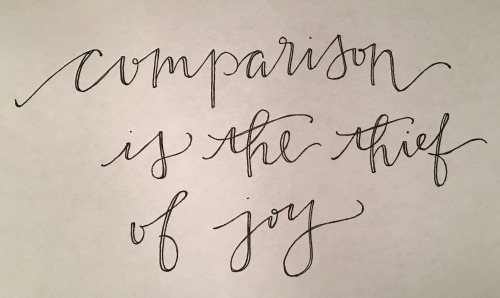 comparison
is the thief
of joy